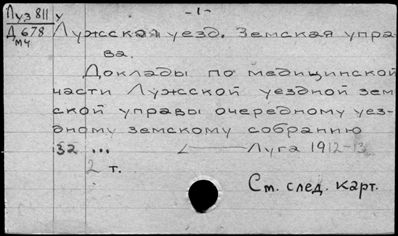 Луз 811 у - 1 -
Д 678 Лужский уезд. Земская упра-
мч ва.
Доклады по медицинской
части Лужской уездной зем
ской управы очередному уез-
дному земскому собранию
32 ... Луга 1912-13
2 т.
См. след. карт.